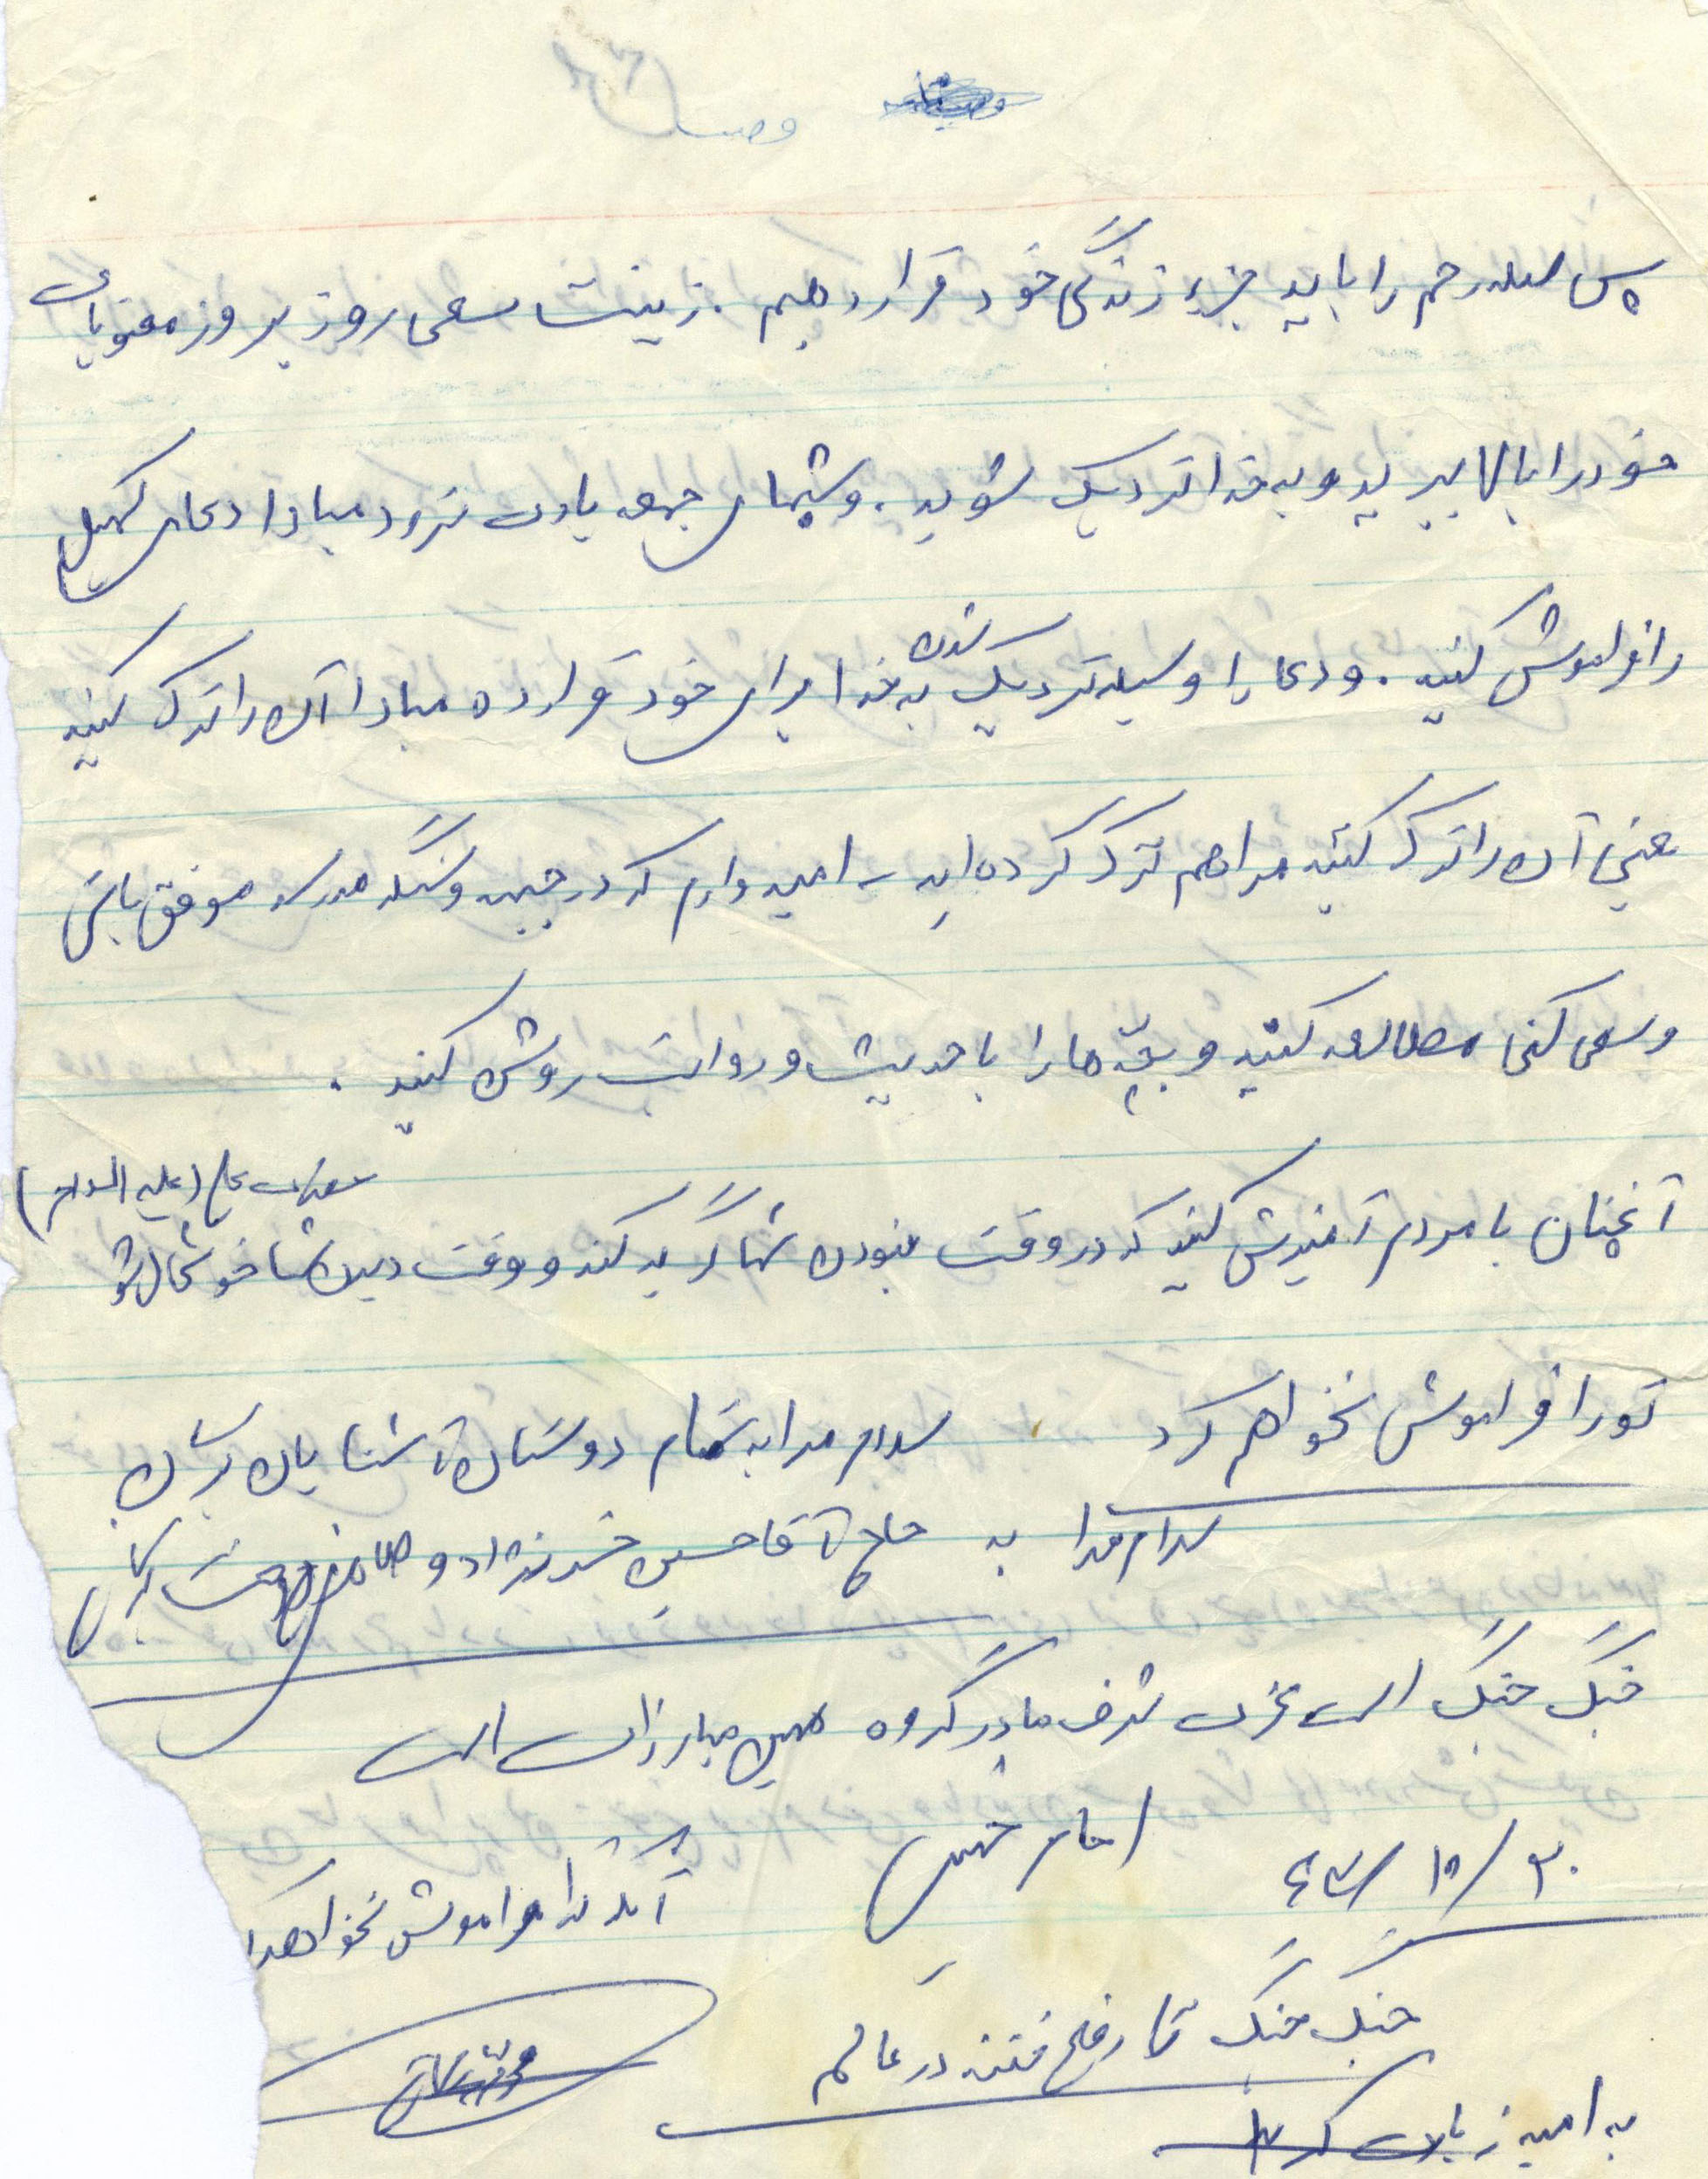 پس صله رحم را باید جزء زندگی خود قرار دهیم. زینت سعی روز بروز معنویات
خود را بالا ببرید و به خدا نزدیک شوید. و شبهای جمعه یادت نرود مبادا دعای کمیل
را فراموش کنید. و دعا را وسیله نزدیک شدن به خدا برای خود قرار ده مبادا آن را ترک کنید
یعنی آن را ترک کنید مرا هم ترک کرده اید امیدوارم که در جبهه و سنگر مدرسه موفق باشی
و سعی کنی مطالعه کنید و بچه ها را با حدیث و روایت روشن کنید.
علی (علیه السلام)
آنچنان با مردم آمیزش کنید که در وقت نبودن شما گریه کند و وقت دیدن شما خوشحال شو
تو را فراموش نخواهم کرد سلام مرا به تمام دوستان آشنایان برسان
سلام مرا به حاج آقا حسین و
جنگ جنگ است عزت شرف ما در گرو همین مبارزات است
امام خمینی
۶۳/۱۰/۳۰
آنکه ترا فراموش نخواهد
جنگ جنگ تا رفع فتنه در عالم
به امید زیارت کربلا